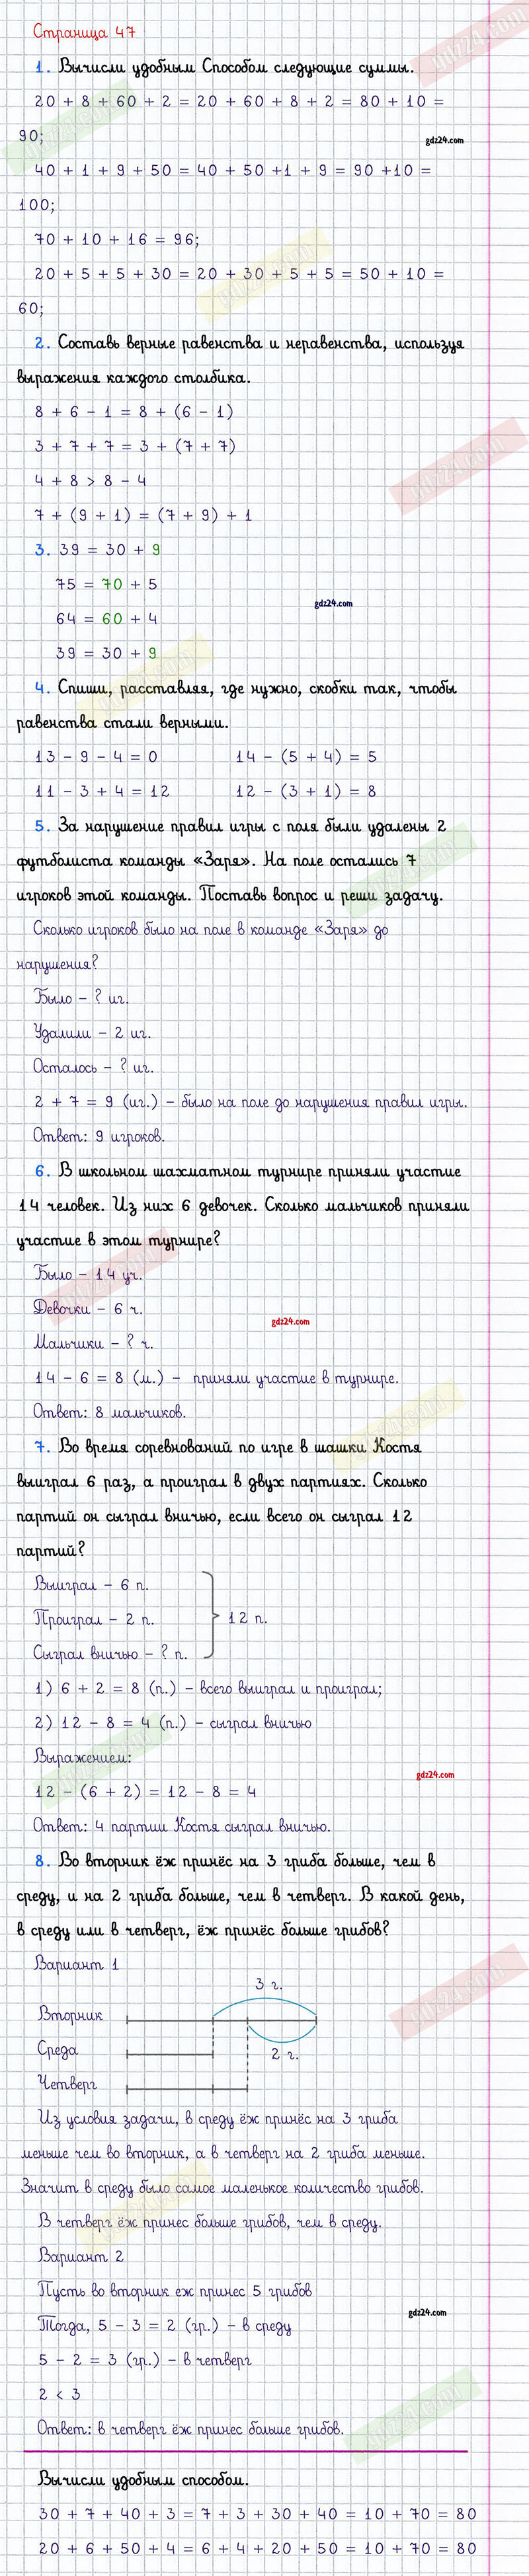 Страница 47
1. Вычисли удобным Способом следующие суммы.
20 + 8 + 60 + 2 = 20 + 60 + 8 + 2 = 80 + 10 =
90;
gdz24.com
40 + 1 + 9 + 50 = 40 + 50 +1 + 9 = 90 +10 =
100;
70 + 10 + 16 = 96;
20 + 5 + 5 + 30 = 20 + 30 + 5 + 5 = 50 + 10 =
60;
2. Составь верные равенства и неравенства, используя
выражения каждого столбика.
8 + 6 - 1 = 8 + (6 - 1)
3 + 7 + 7 = 3 + (7 + 7)
4 + 8 > 8 - 4
7 + (9 + 1) = (7 + 9) + 1
3. 39 = 30 + 9
75 = 70 + 5
gdz24.com
64 = 60 + 4
39 = 30 + 9
4. Спиши, расставляя, где нужно, скобки так, чтобы
равенства стали верными.
13 - 9 - 4 = 0 14 - (5 + 4) = 5
11 - 3 + 4 = 12 12 - (3 + 1) = 8
5. За нарушение правил игры с поля были удалены 2
футболиста команды «Заря». На поле остались 7
игроков этой команды. Поставь вопрос и реши задачу.
Сколько игроков было на поле в команде «Заря» до
нарушения?
Было – ? иг.
Удалили – 2 иг.
Осталось – ? иг.
2 + 7 = 9 (иг.) – было на поле до нарушения правил игры.
Ответ: 9 игроков.
6. В школьном шахматном турнире приняли участие
14 человек. Из них 6 девочек. Сколько мальчиков приняли
участие в этом турнире?
Было – 14 уч.
Девочки – 6 ч.
gdz24.com
Мальчики – ? ч.
14 - 6 = 8 (м.) – приняли участие в турнире.
Ответ: 8 мальчиков.
7. Во время соревнований по игре в шашки Костя
выиграл 6 раз, а проиграл в двух партиях. Сколько
партий он сыграл вничью, если всего он сыграл 12
партий?
Выиграл – 6 п.
Проиграл – 2 п. 12 п.
Сыграл вничью – ? п.
1) 6 + 2 = 8 (п.) – всего выиграл и проиграл;
2) 12 - 8 = 4 (п.) – сыграл вничью
Выражением:
gdz24.com
12 - (6 + 2) = 12 - 8 = 4
Ответ: 4 партии Костя сыграл вничью.
8. Во вторник ёж принёс на 3 гриба больше, чем в
среду, и на 2 гриба больше, чем в четверг. В какой день,
в среду или в четверг, ёж принёс больше грибов?
Вариант 1
3 г.
Вторник
Среда
2 г.
Четверг
Из условия задачи, в среду ёж принёс на 3 гриба
меньше чем во вторник, а в четверг на 2 гриба меньше.
Значит в среду было самое маленькое количество грибов.
В четверг ёж принес больше грибов, чем в среду.
Вариант 2
Пусть во вторник еж принес 5 грибов
gdz24.com
Тогда, 5 - 3 = 2 (гр.) – в среду
5 - 2 = 3 (гр.) – в четверг
2 < 3
Ответ: в четверг ёж принес больше грибов.
Вычисли удобным способом.
30 + 7 + 40 + 3 = 7 + 3 + 30 + 40 = 10 + 70 = 80
20 + 6 + 50 + 4 = 6 + 4 + 20 + 50 = 10 + 70 = 80